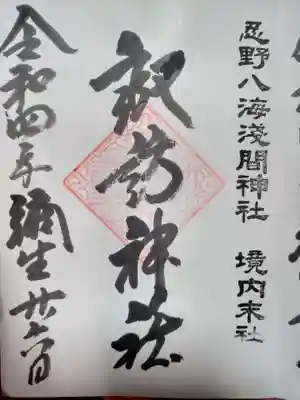 忍野八海淺間神社 境内末社
諏訪神社
令和四年彌生廿六日